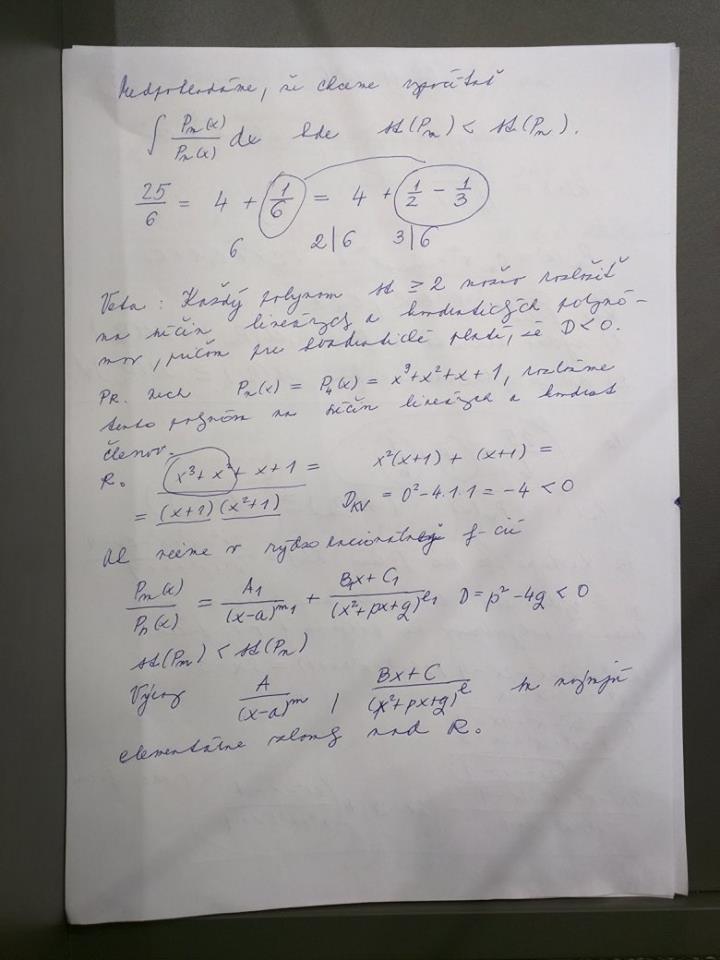 Predpokladáme, že chceme vypočítať
∫ Pm(x)/Pn(x) dx kde st(Pm) < st(Pn).
25/6 = 4 + 1/6 = 4 + 1/2 - 1/3
6 2|6 3|6
Veta: Každý polynom st ≥ 2 možno rozložiť
na súčin lineárnych a kvadratických polynó-
mov, pričom pre kvadratické platí, že D<0.
PR. nech Pn(x) = P4(x) = x^3+x^2+x+1, rozložme
tento polynóm na súčin lineárnych a kvadrat
členov.
R. x^3+x^2+x+1 = x^2(x+1) + (x+1) =
= (x+1)(x^2+1) DKV = 0^2-4.1.1 = -4 < 0
v f-cií
Pm(x)/Pn(x) = A1/(x-a)^m1 + B1x+C1/(x^2+px+q)^l1 D=p^2-4q<0
st(Pm) < st(Pn)
Výrazy A/(x-a)^m, Bx+C/(x^2+px+q)^l sa nazývajú
elementárne zlomky nad R.